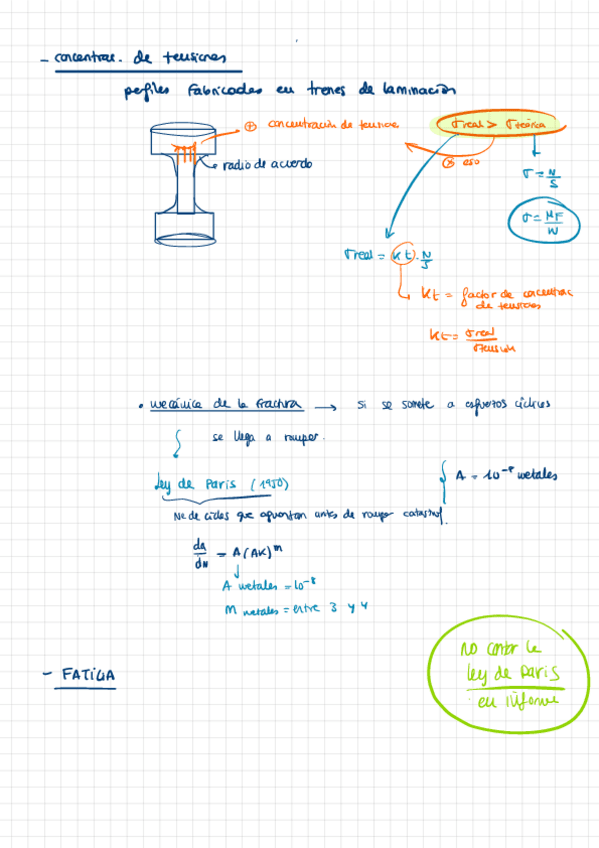 - concentrac. de tensiones
perfiles fabricados en trenes de laminación
⊕ concentración de tensione
radio de acuerdo
σreal > σteórica
⊗ eso
σ = N/S
σ = MF/W
σreal = kt · N/S
kt = factor de concentrac
de tensiones
kt = σreal/σtensión
• mecánica de la fractura → si se somete a esfuerzos cíclicos
se llega a romper.
Ley de Paris (1950)
A = 10⁻⁸ metales
Nº de ciclos que aguantan antes de romper catastrof.
da/dN = A(ΔK)^m
A metales = 10⁻⁸
M metales = entre 3 y 4
no contar la
ley de Paris
en informe
- FATIGA